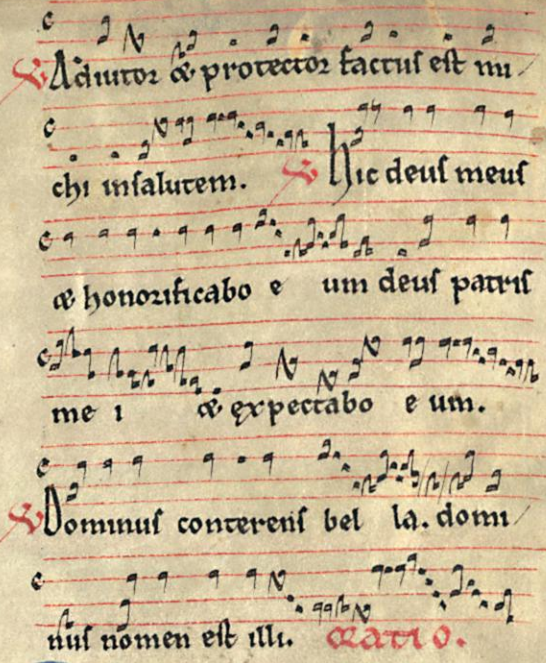 ℣ Adiutor & protector factus est mi
chi insalutem. ℣ Hic deus meus
& honorificabo e um deus patris
me i & expectabo e um.
℣ Dominus conterens bel la. domi
nus nomen est illi. oratio.